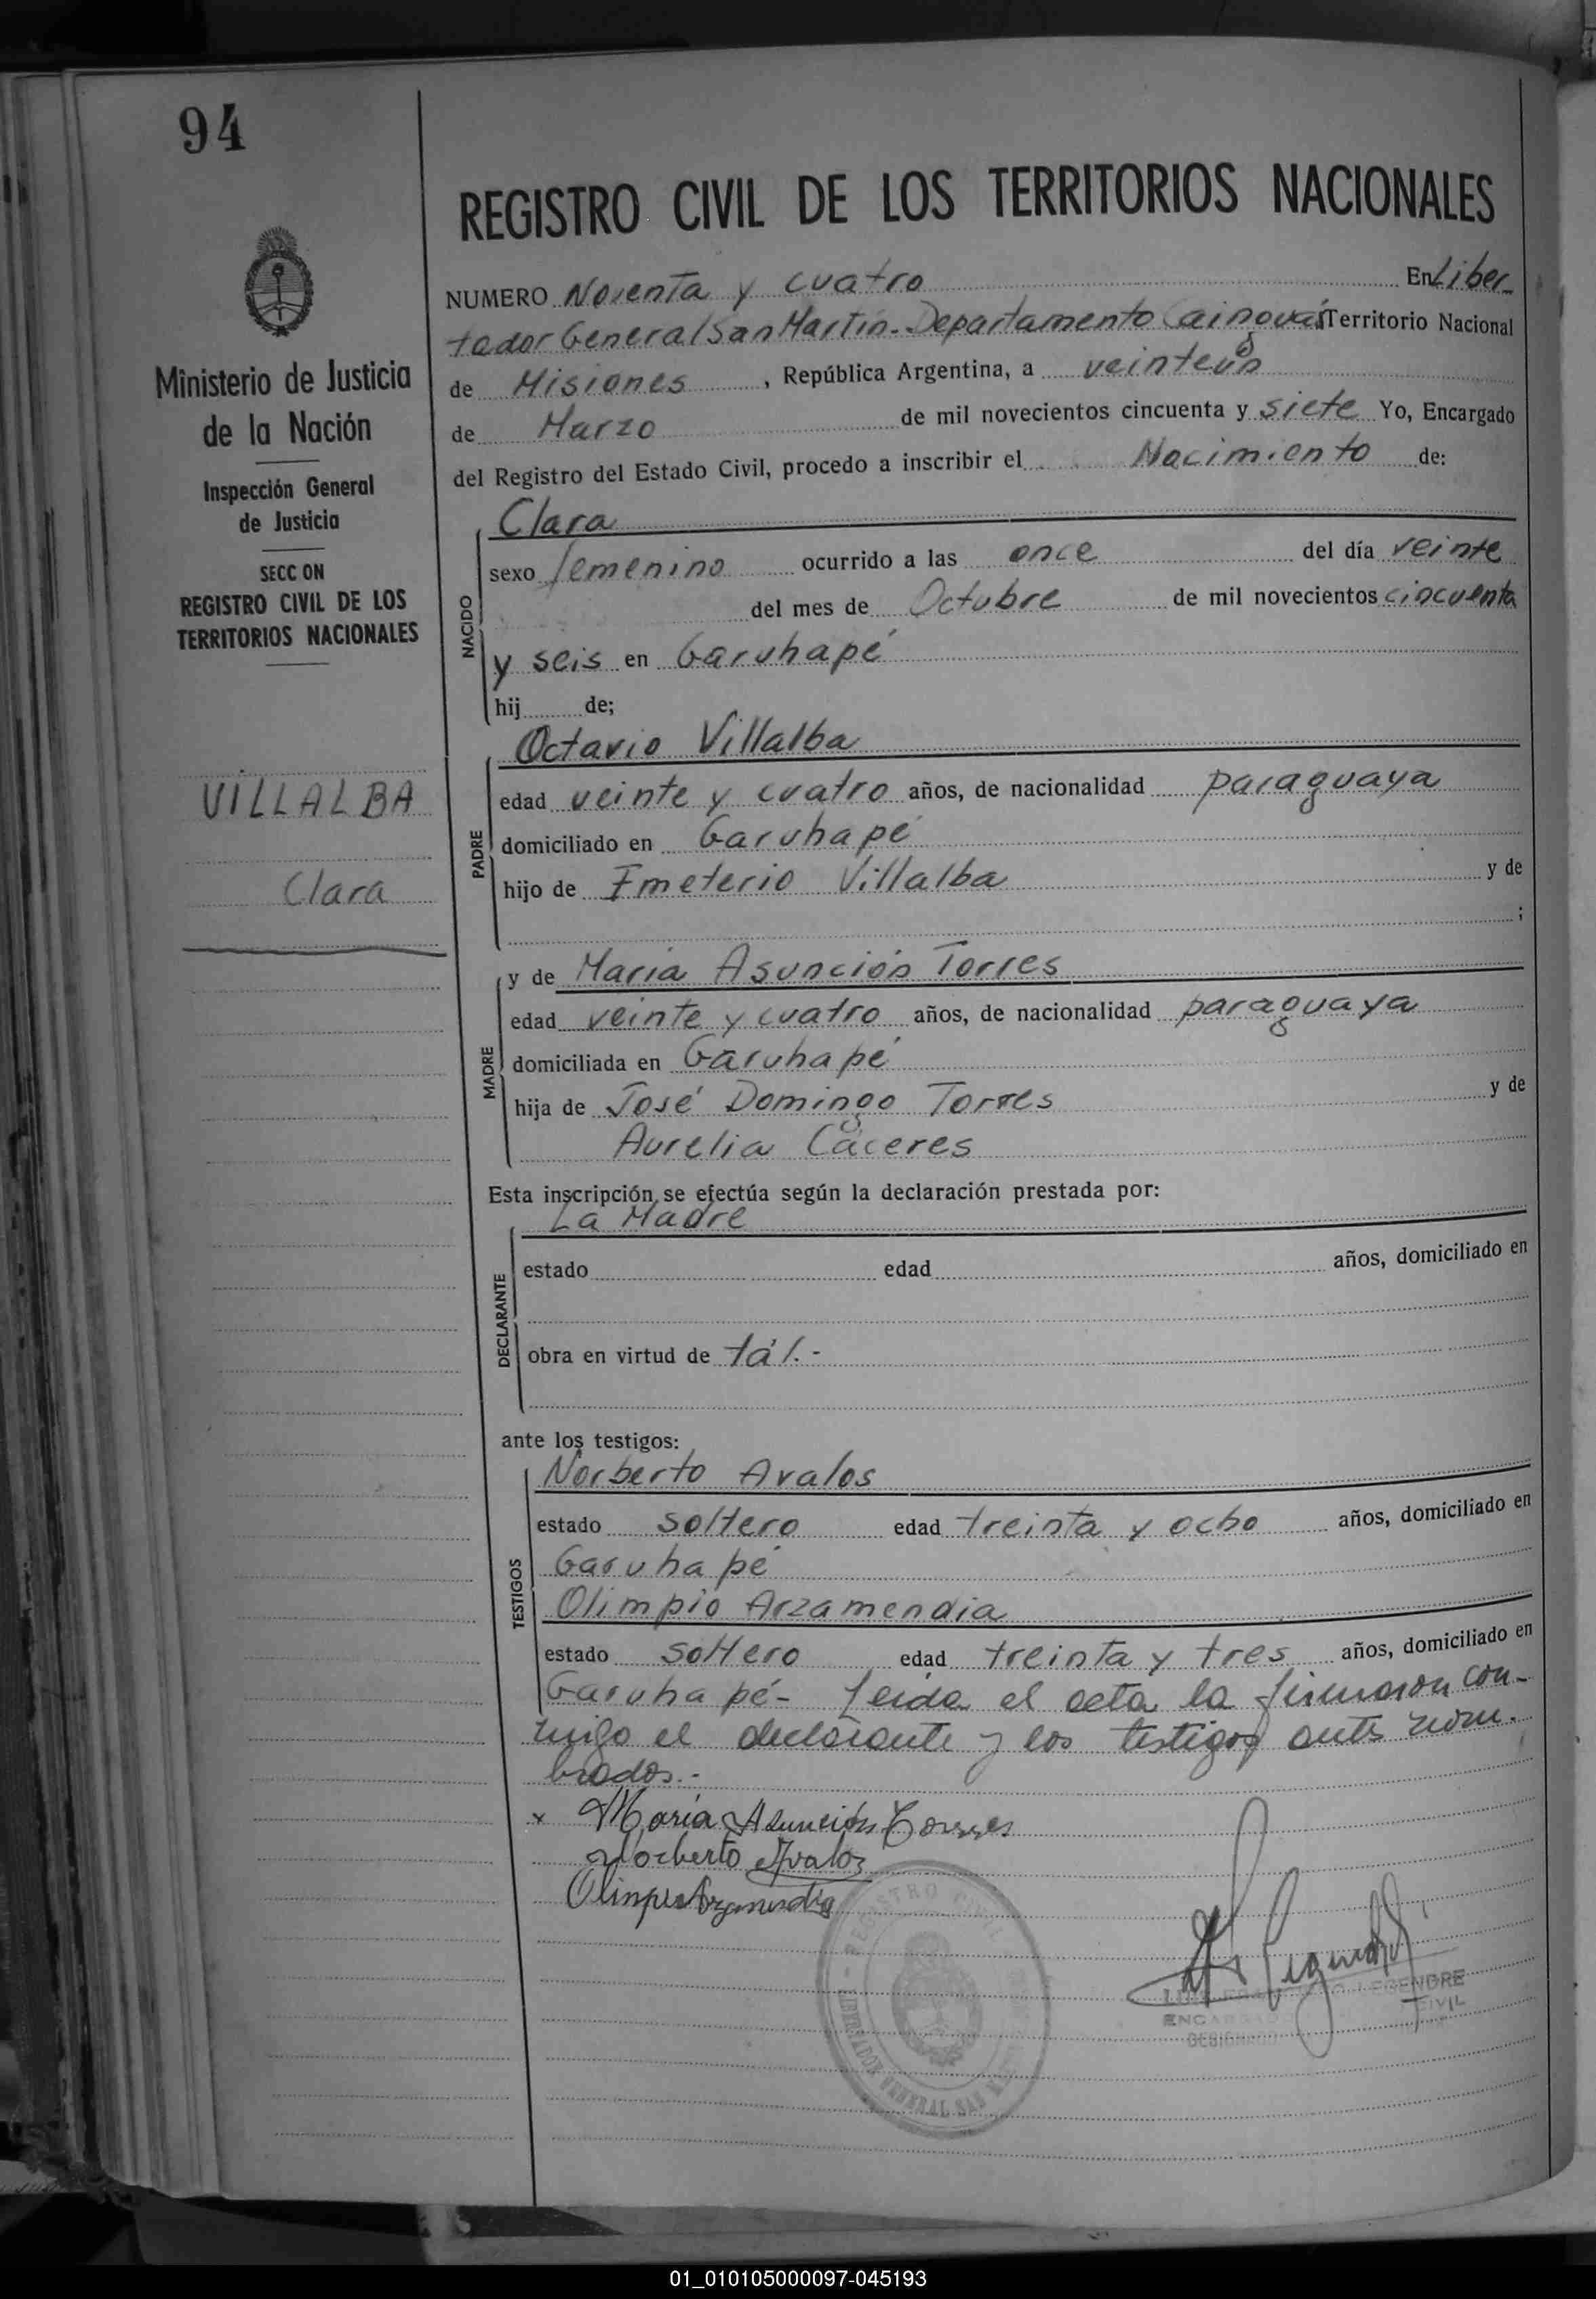 94
REGISTRO CIVIL DE LOS TERRITORIOS NACIONALES
Ministerio de Justicia
de la Nación
Inspección General
de Justicia
SECC ON
REGISTRO CIVIL DE LOS
TERRITORIOS NACIONALES
VILLALBA
Clara
NUMERO Noventa y cuatro En Liber-
tador General San Martín. Departamento Cainguás Territorio Nacional
de Misiones, República Argentina, a
de Marzo de mil novecientos cincuenta y siete Yo, Encargado
del Registro del Estado Civil, procedo a inscribir el Nacimiento de:
NACIDO
Clara
sexo femenino ocurrido a las once del día veinte
del mes de Octubre de mil novecientos cincuenta
y seis en Garuhapé
hij de;
PADRE
Octavio Villalba
edad veinte y cuatro años, de nacionalidad paraguaya
domiciliado en Garuhapé
hijo de Emeterio Villalba y de
;
MADRE
y de María Asunción Torres
edad veinte y cuatro años, de nacionalidad paraguaya
domiciliada en Garuhapé
hija de José Domingo Torres y de
Aurelia Cáceres
Esta inscripción se efectúa según la declaración prestada por:
DECLARANTE
La Madre
estado edad años, domiciliado en
obra en virtud de tál.-
ante los testigos:
TESTIGOS
Norberto Avalos
estado soltero edad treinta y ocho años, domiciliado en
Garuhapé
Olimpio Arzamendia
estado soltero edad treinta y tres años, domiciliado en
Garuhapé- Leida el acta la firmaron con-
migo el declarante y los testigos antes nom-
brados.-
x María Asunción Torres
Norberto Avalos
Olimpio Arzamendia
REGISTRO CIVIL
LIBERTADOR GENERAL SAN
LEGENDRE
CIVIL
01_010105000097-045193